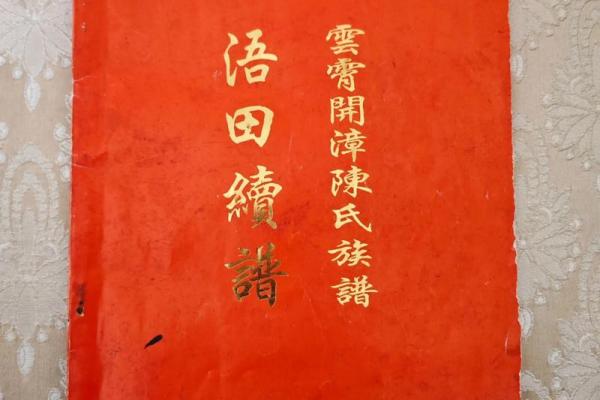 雲霄開漳陳氏族譜
浯田續譜